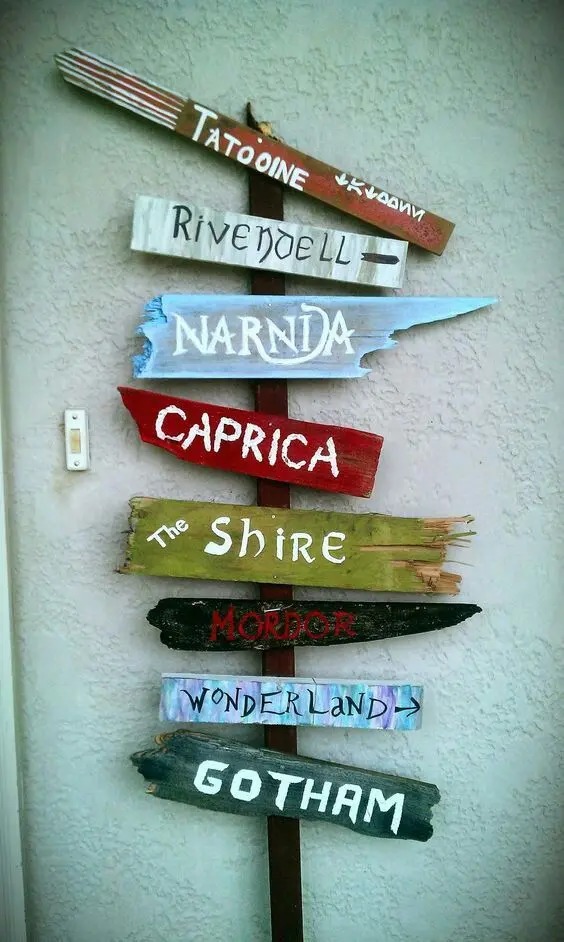 TATOOINE
RIVENDELL
NARNIA
CAPRICA
The Shire
MORDOR
WONDERLaND →
GOTHAM